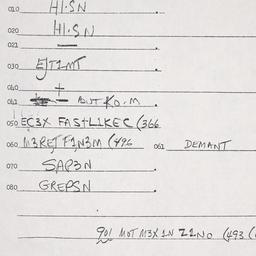 010 HI.SN .
020 HI.SN .
021 — .
030 EJTIMT .
040 + .
041 — BUT KO.M.
050 EC3X FASTLIKEC (366
060 M3RET FIN3M (496 061 DEMANT
070 SAP3N .
080 GREPSN .
901 MOT M3X IN ZINO (493 (